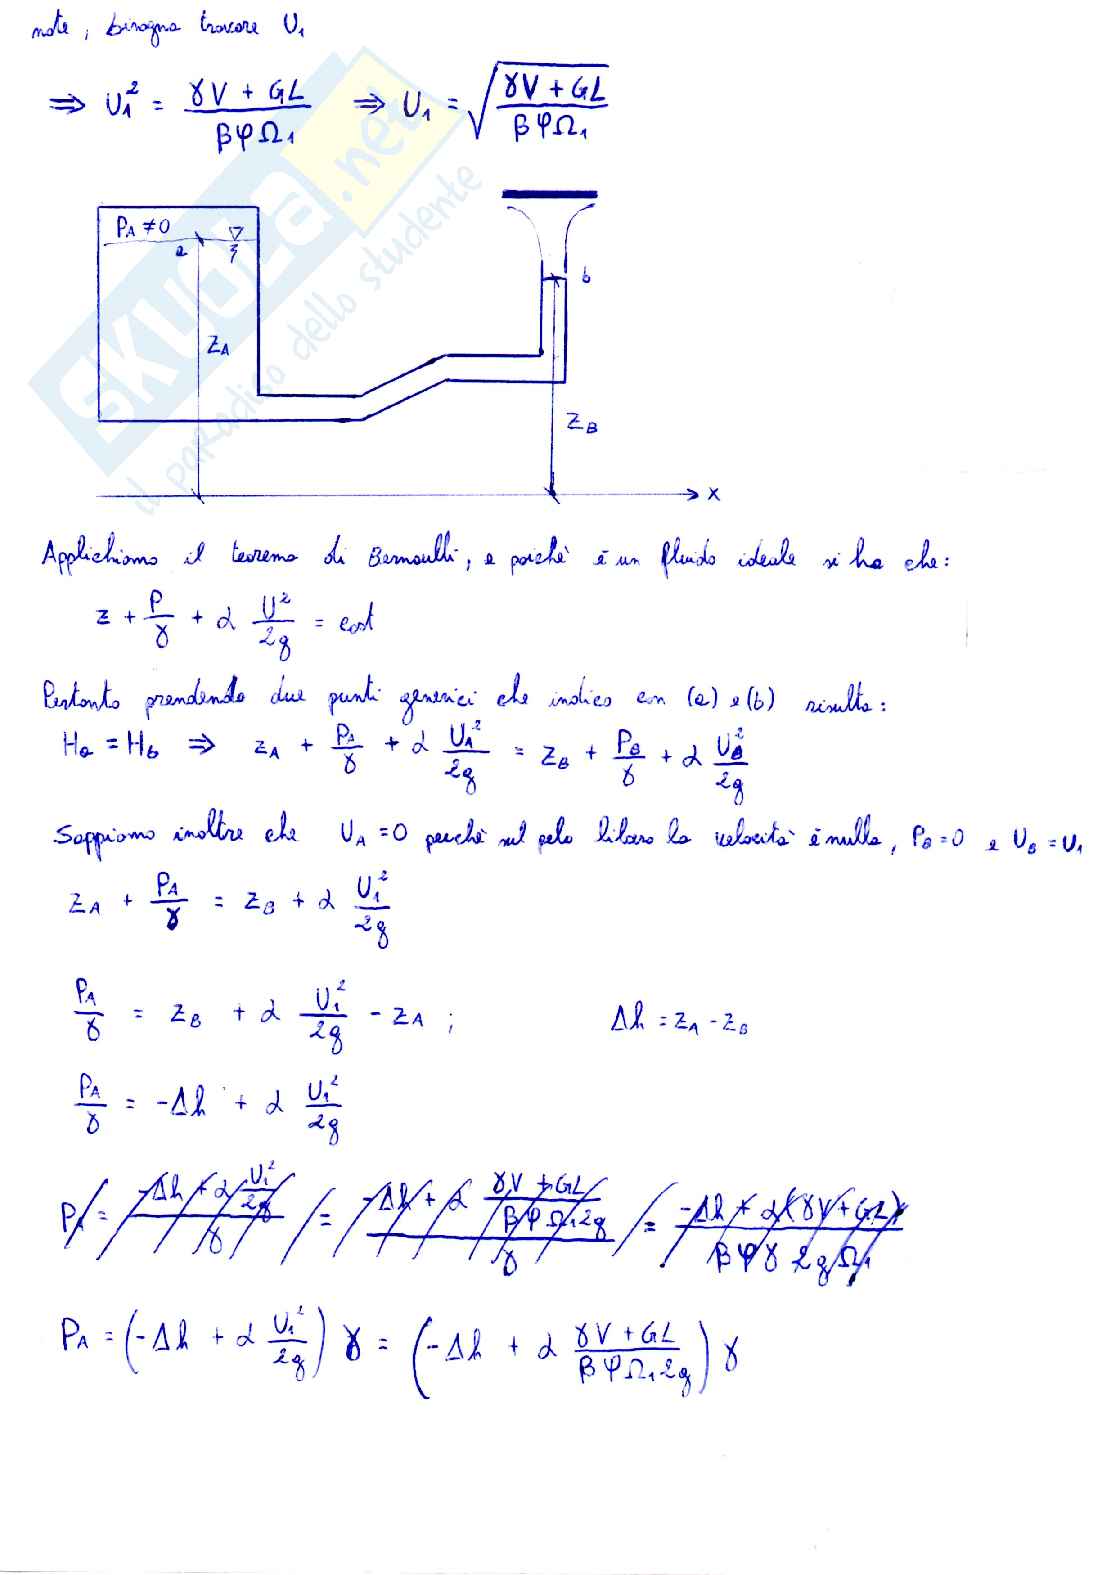 note, bisogna trovare U₁
⇒ U₁² = (γV + GL) / (βρΩ₁) ⇒ U₁ = √((γV + GL) / (βρΩ₁))
SKUOLA.net
il paradiso dello studente
P_A ≠ 0
a
b
Z_A
Z_B
x
Applichiamo il teorema di Bernoulli, e poichè è un fluido ideale si ha che:
z + P/γ + α U²/2g = cost
Pertanto prendendo due punti generici che indico con (a) e (b) risulta:
H_a = H_b ⇒ z_A + P_A/γ + α U_A²/2g = z_B + P_B/γ + α U_B²/2g
Sappiamo inoltre che U_A = 0 perchè sul pelo libero la velocità è nulla, P_B = 0 e U_B = U₁
z_A + P_A/γ = z_B + α U₁²/2g
P_A/γ = z_B + α U₁²/2g - z_A ; Δh = z_A - z_B
P_A/γ = -Δh + α U₁²/2g
P_A = (-Δh + α U₁²/2g) / γ = (-Δh + α (γV + GL)/(βρΩ₁2g)) / γ = (-Δh + α(γV + GL)) / (βργ 2gΩ₁)
P_A = (-Δh + α U₁²/2g) γ = (-Δh + α (γV + GL)/(βρΩ₁2g)) γ